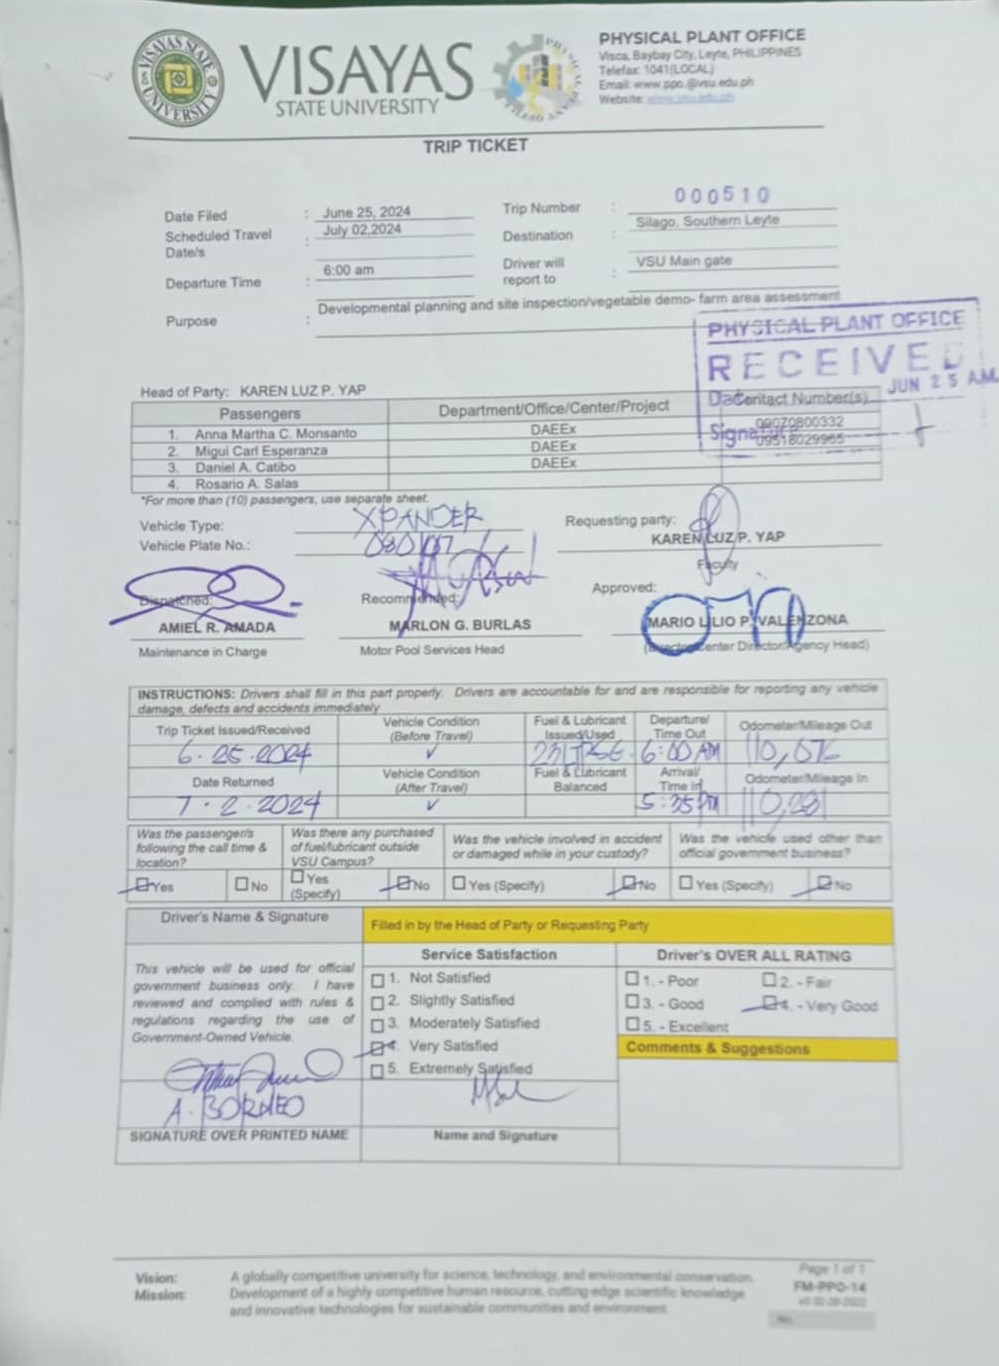 VISAYAS
STATE UNIVERSITY
PHYSICAL PLANT OFFICE
Visca, Baybay City, Leyte, PHILIPPINES
Telefax: 1041(LOCAL)
Email: www.ppo.@vsu.edu.ph
Website: www.vsu.edu.ph
TRIP TICKET
Date Filed : June 25, 2024
Trip Number : 000510
Scheduled Travel Date/s : July 02,2024
Destination : Silago, Southern Leyte
Departure Time : 6:00 am
Driver will report to : VSU Main gate
Purpose : Developmental planning and site inspection/vegetable demo- farm area assessment
PHYSICAL PLANT OFFICE
RECEIVED
JUN 25 A.M.
Head of Party: KAREN LUZ P. YAP
Passengers Department/Office/Center/Project Contact Number(s)
1. Anna Martha C. Monsanto DAEEx 09070800332
2. Migui Carl Esperanza DAEEx
3. Daniel A. Catibo DAEEx
4. Rosario A. Salas
*For more than (10) passengers, use separate sheet.
Vehicle Type: XPANDER
Requesting party:
Vehicle Plate No.:
KAREN LUZ P. YAP
Faculty
Dispatched: Recommended: Approved:
AMIEL R. AMADA MARLON G. BURLAS MARIO LILIO P. VALENZONA
Maintenance in Charge Motor Pool Services Head (Director/Center Director/Agency Head)
INSTRUCTIONS: Drivers shall fill in this part properly. Drivers are accountable for and are responsible for reporting any vehicle
damage, defects and accidents immediately
Trip Ticket Issued/Received Vehicle Condition (Before Travel) Fuel & Lubricant Issued/Used Departure/ Time Out Odometer/Mileage Out
6-25-2024 ✓ 6:00 AM
Date Returned Vehicle Condition (After Travel) Fuel & Lubricant Balanced Arrival/ Time In Odometer/Mileage In
7-2-2024 ✓ 5:35 PM
Was the passenger/s following the call time & location? Was there any purchased of fuel/lubricant outside VSU Campus? Was the vehicle involved in accident or damaged while in your custody? Was the vehicle used other than official government business?
Yes No Yes (Specify) No Yes (Specify) No Yes (Specify) No
Driver's Name & Signature
Filled in by the Head of Party or Requesting Party
Service Satisfaction Driver's OVER ALL RATING
This vehicle will be used for official
government business only. I have
reviewed and complied with rules &
regulations regarding the use of
Government-Owned Vehicle.
1. Not Satisfied
2. Slightly Satisfied
3. Moderately Satisfied
4. Very Satisfied
5. Extremely Satisfied
1. - Poor 2. - Fair
3. - Good 4. - Very Good
5. - Excellent
Comments & Suggestions
A. BORNEO
SIGNATURE OVER PRINTED NAME Name and Signature
Vision: A globally competitive university for science, technology, and environmental conservation.
Mission: Development of a highly competitive human resource, cutting-edge scientific knowledge
and innovative technologies for sustainable communities and environment.
Page 1 of 1
FM-PPO-14
No.